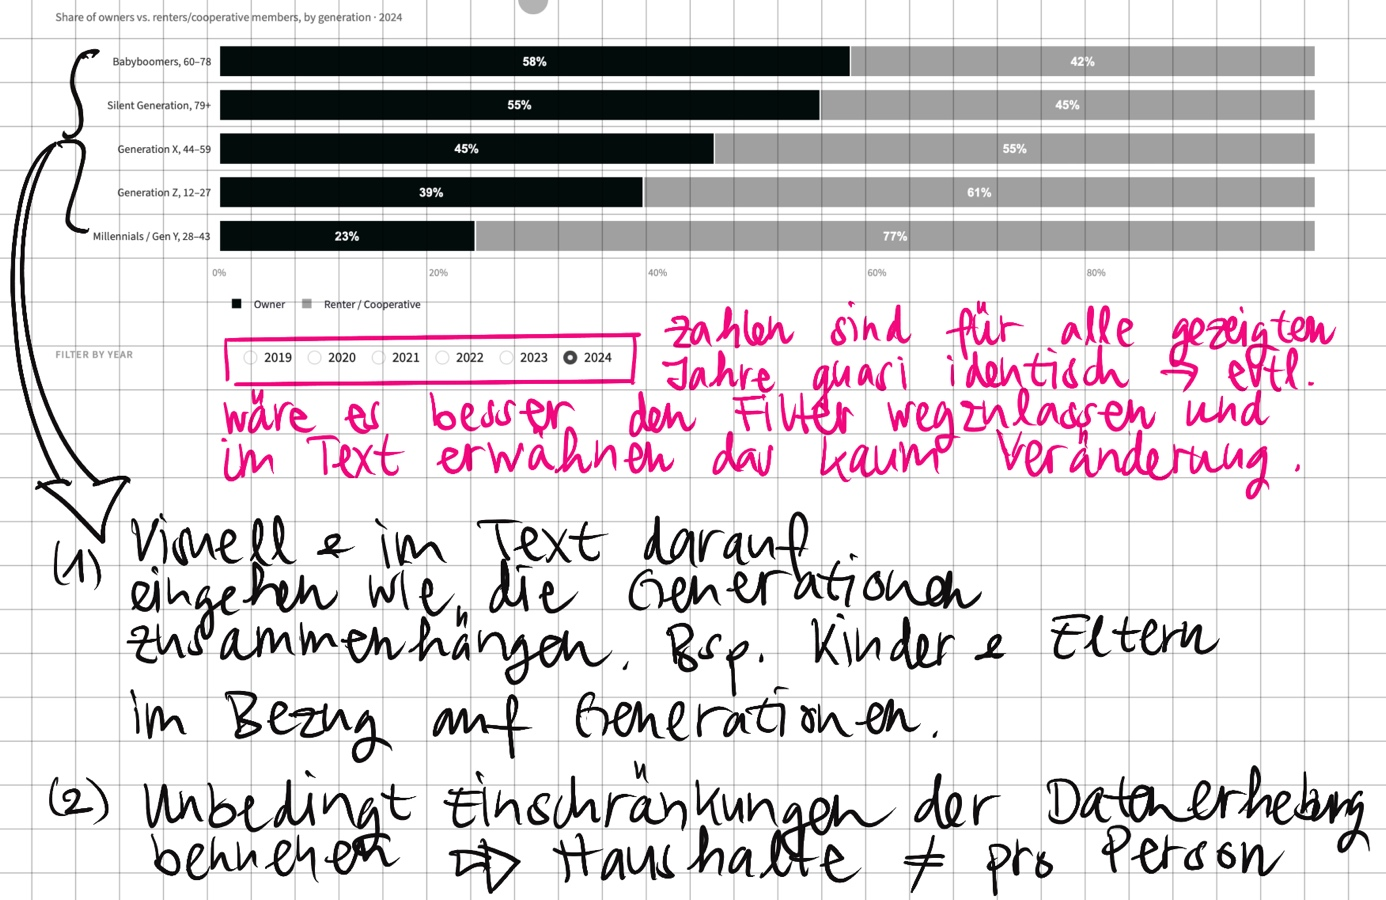 Share of owners vs. renters/cooperative members, by generation · 2024
Babyboomers, 60–78 58% 42%
Silent Generation, 79+ 55% 45%
Generation X, 44–59 45% 55%
Generation Z, 12–27 39% 61%
Millennials / Gen Y, 28–43 23% 77%
0% 20% 40% 60% 80%
Owner Renter / Cooperative
FILTER BY YEAR 2019 2020 2021 2022 2023 2024
Zahlen sind für alle gezeigten
Jahre quasi identisch → evtl.
wäre es besser den Filter wegzulassen und
im Text erwähnen das kaum Veränderung.
(1) Visuell & im Text darauf
eingehen wie die Generationen
zusammenhängen. Bsp. Kinder & Eltern
im Bezug auf Generationen.
(2) Unbedingt Einschränkungen der Datenerhebung
⇒ Haushalte ≠ pro Person